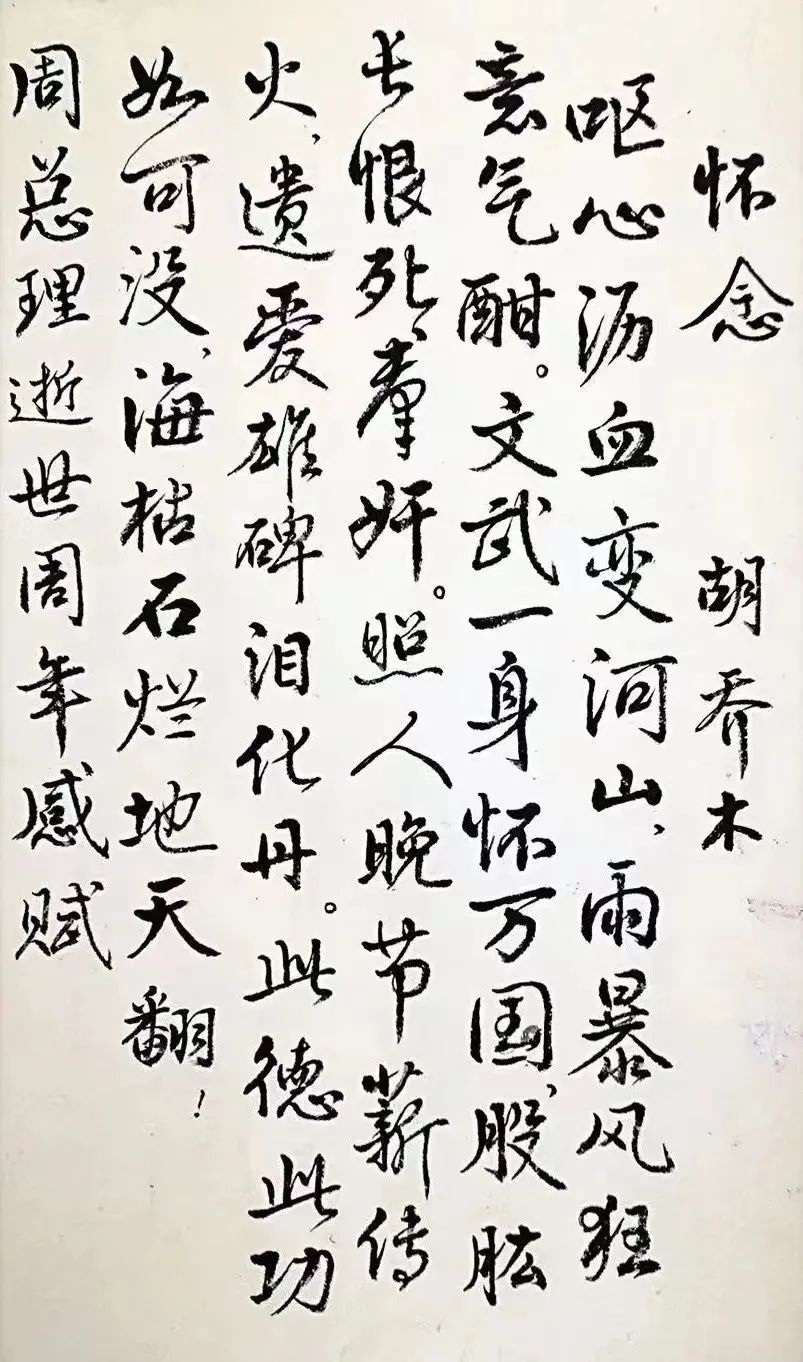 怀念 胡乔木
呕心沥血变河山、雨暴风狂
意气酣。文武一身怀万国、股肱
长恨死、群奸。照人晚节薪传
火、遗爱雄碑泪化丹。此德此功
如可没、海枯石烂地天翻！
周总理逝世周年感赋